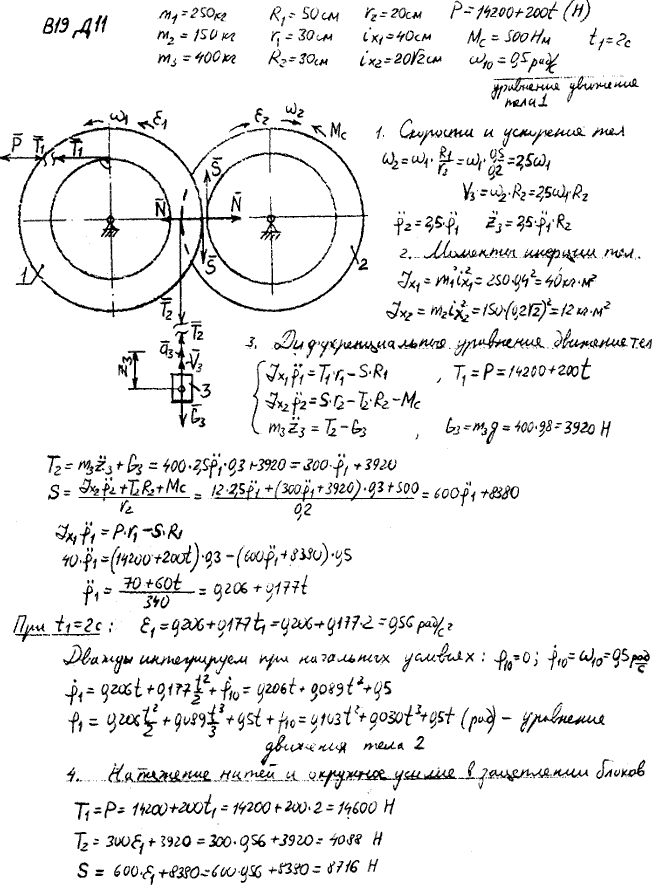 В19, Д11
m₁=250кг R₁=50см r₂=20см P=14200+200t (Н)
m₂=150кг r₁=30см ix₁=40см Mc=500Нм t₁=2с
m₃=400кг R₂=30см ix₂=20√2см ω₁₀=0,5рад/с
уравнение движения
тела 1
ω₁ ε₁ ε₂ ω₂ Mc
P̅ T̅₁ T̅₁ S̅
N̅ N̅
S̅
1 2
T̅₂
T̅₂
a̅₃
V̅₃
Z₃ 3
G̅₃
1. Скорости и ускорения тел
ω₂=ω₁·R₁/r₂=ω₁·0,5/0,2=2,5ω₁
V₃=ω₂·R₂=2,5ω₁·R₂
φ̈₂=2,5·φ̈₁ z̈₃=2,5·φ̈₁·R₂
2. Моменты инерции тел.
Jx₁=m₁ix₁²=250·0,4²=40кг·м²
Jx₂=m₂ix₂²=150·(0,2√2)²=12кг·м²
3. Дифференциальные уравнения движения тел
Jx₁φ̈₁=T₁·r₁-S·R₁ , T₁=P=14200+200t
Jx₂φ̈₂=S·r₂-T₂·R₂-Mc
m₃z̈₃=T₂-G₃ , G₃=m₃g=400·9,8=3920 Н
T₂=m₃z̈₃+G₃=400·2,5φ̈₁·0,3+3920=300·φ̈₁+3920
S=(Jx₂φ̈₂+T₂R₂+Mc)/r₂=(12·2,5φ̈₁+(300φ̈₁+3920)·0,3+500)/0,2=600φ̈₁+8380
Jx₁φ̈₁=P·r₁-S·R₁
40·φ̈₁=(14200+200t)·0,3-(600φ̈₁+8380)·0,5
φ̈₁=(70+60t)/340=0,206+0,177t
При t₁=2с: ε₁=0,206+0,177t₁=0,206+0,177·2=0,56 рад/с²
Дважды интегрируем при начальных условиях: φ₁₀=0; φ̇₁₀=ω₁₀=0,5рад/с
φ̇₁=0,206t+0,177t²/2+φ̇₁₀=0,206t+0,089t²+0,5
φ₁=0,206t²/2+0,089t³/3+0,5t+φ₁₀=0,103t²+0,030t³+0,5t (рад) – уравнение
движения тела 2
4. Натяжение нитей и окружное усилие в зацеплении блоков
T₁=P=14200+200t₁=14200+200·2=14600 Н
T₂=300ε₁+3920=300·0,56+3920=4088 Н
S=600·ε₁+8380=600·0,56+8380=8716 Н